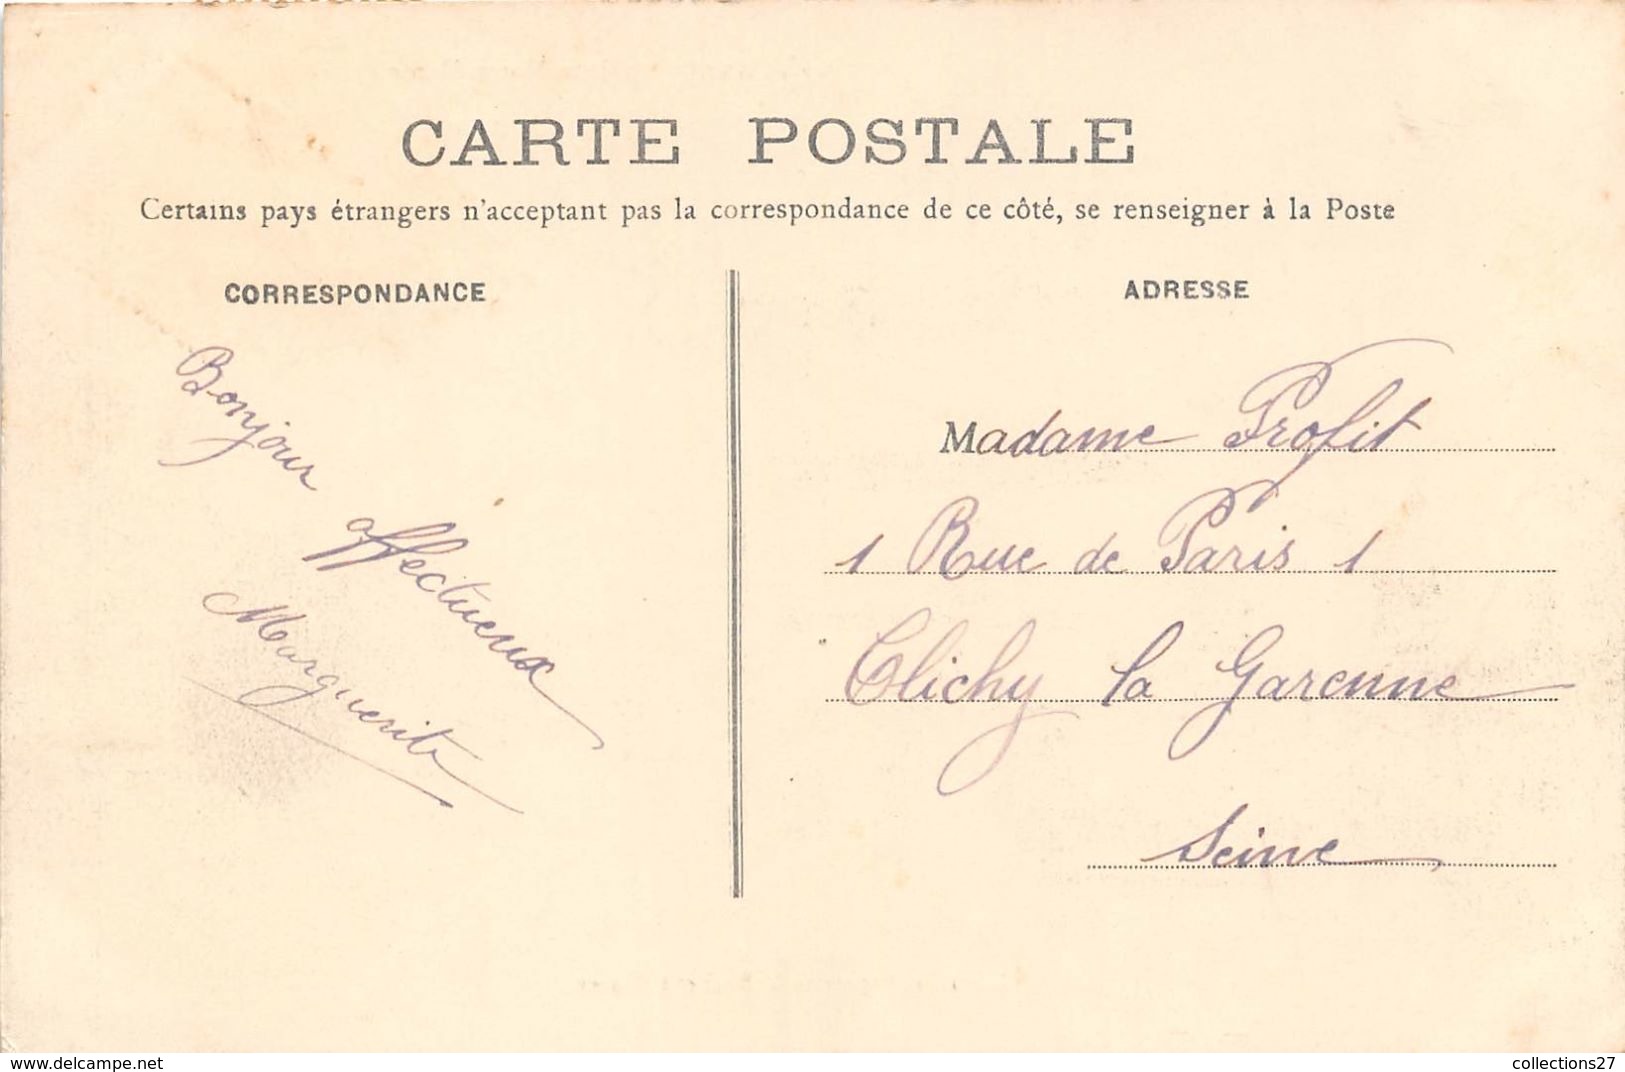 CARTE POSTALE
Certains pays étrangers n'acceptant pas la correspondance de ce côté, se renseigner à la Poste
CORRESPONDANCE
Bonjour
affectueux
Marguerite
ADRESSE
Madame Profit
1 Rue de Paris 1
Clichy la Garenne
Seine
delcampe.net
collections27